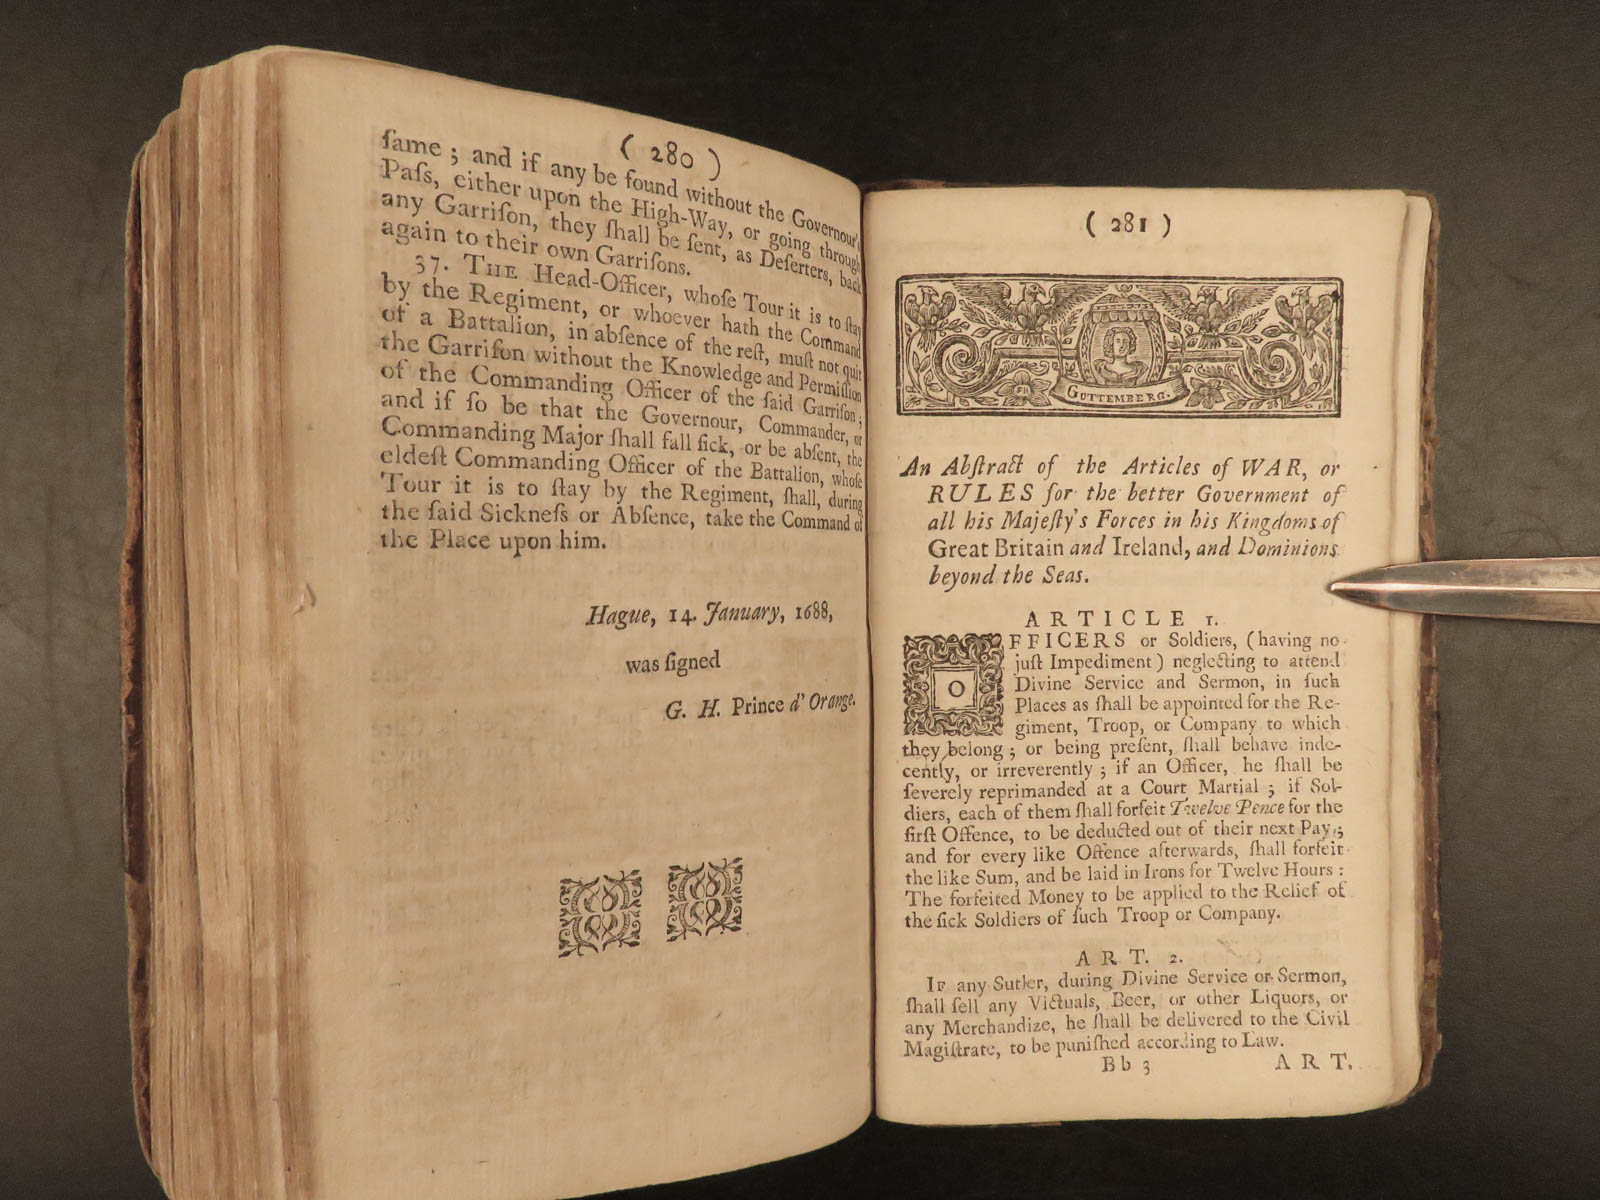 ( 280 )
ſame ; and if any be found without the Governour's
Paſs, either upon the High-Way, or going through
any Garriſon, they ſhall be ſent, as Deſerters, back
again to their own Garriſons.
37. THE Head-Officer, whoſe Tour it is to ſtay
by the Regiment, or whoever hath the Command
of a Battalion, in abſence of the reſt, muſt not quit
the Garriſon without the Knowledge and Permiſſion
of the Commanding Officer of the ſaid Garriſon ;
and if ſo be that the Governour, Commander, or
Commanding Major ſhall fall ſick, or be abſent, the
eldeſt Commanding Officer of the Battalion, whoſe
Tour it is to ſtay by the Regiment, ſhall, during
the ſaid Sickneſs or Abſence, take the Command of
the Place upon him.
Hague, 14. January, 1688,
was ſigned
G. H. Prince d' Orange.
( 281 )
FH
GUTTEMBERG.
An Abſtract of the Articles of WAR, or
RULES for the better Government of
all his Majeſty's Forces in his Kingdoms of
Great Britain and Ireland, and Dominions
beyond the Seas.
ARTICLE 1.
OFFICERS or Soldiers, (having no
juſt Impediment) neglecting to attend
Divine Service and Sermon, in ſuch
Places as ſhall be appointed for the Re-
giment, Troop, or Company to which
they belong ; or being preſent, ſhall behave inde-
cently, or irreverently ; if an Officer, he ſhall be
ſeverely reprimanded at a Court Martial ; if Sol-
diers, each of them ſhall forfeit Twelve Pence for the
firſt Offence, to be deducted out of their next Pay ;
and for every like Offence afterwards, ſhall forfeit
the like Sum, and be laid in Irons for Twelve Hours :
The forfeited Money to be applied to the Relief of
the ſick Soldiers of ſuch Troop or Company.
ART. 2.
IF any Sutler, during Divine Service or Sermon,
ſhall ſell any Victuals, Beer, or other Liquors, or
any Merchandize, he ſhall be delivered to the Civil
Magiſtrate, to be puniſhed according to Law.
Bb 3 ART.